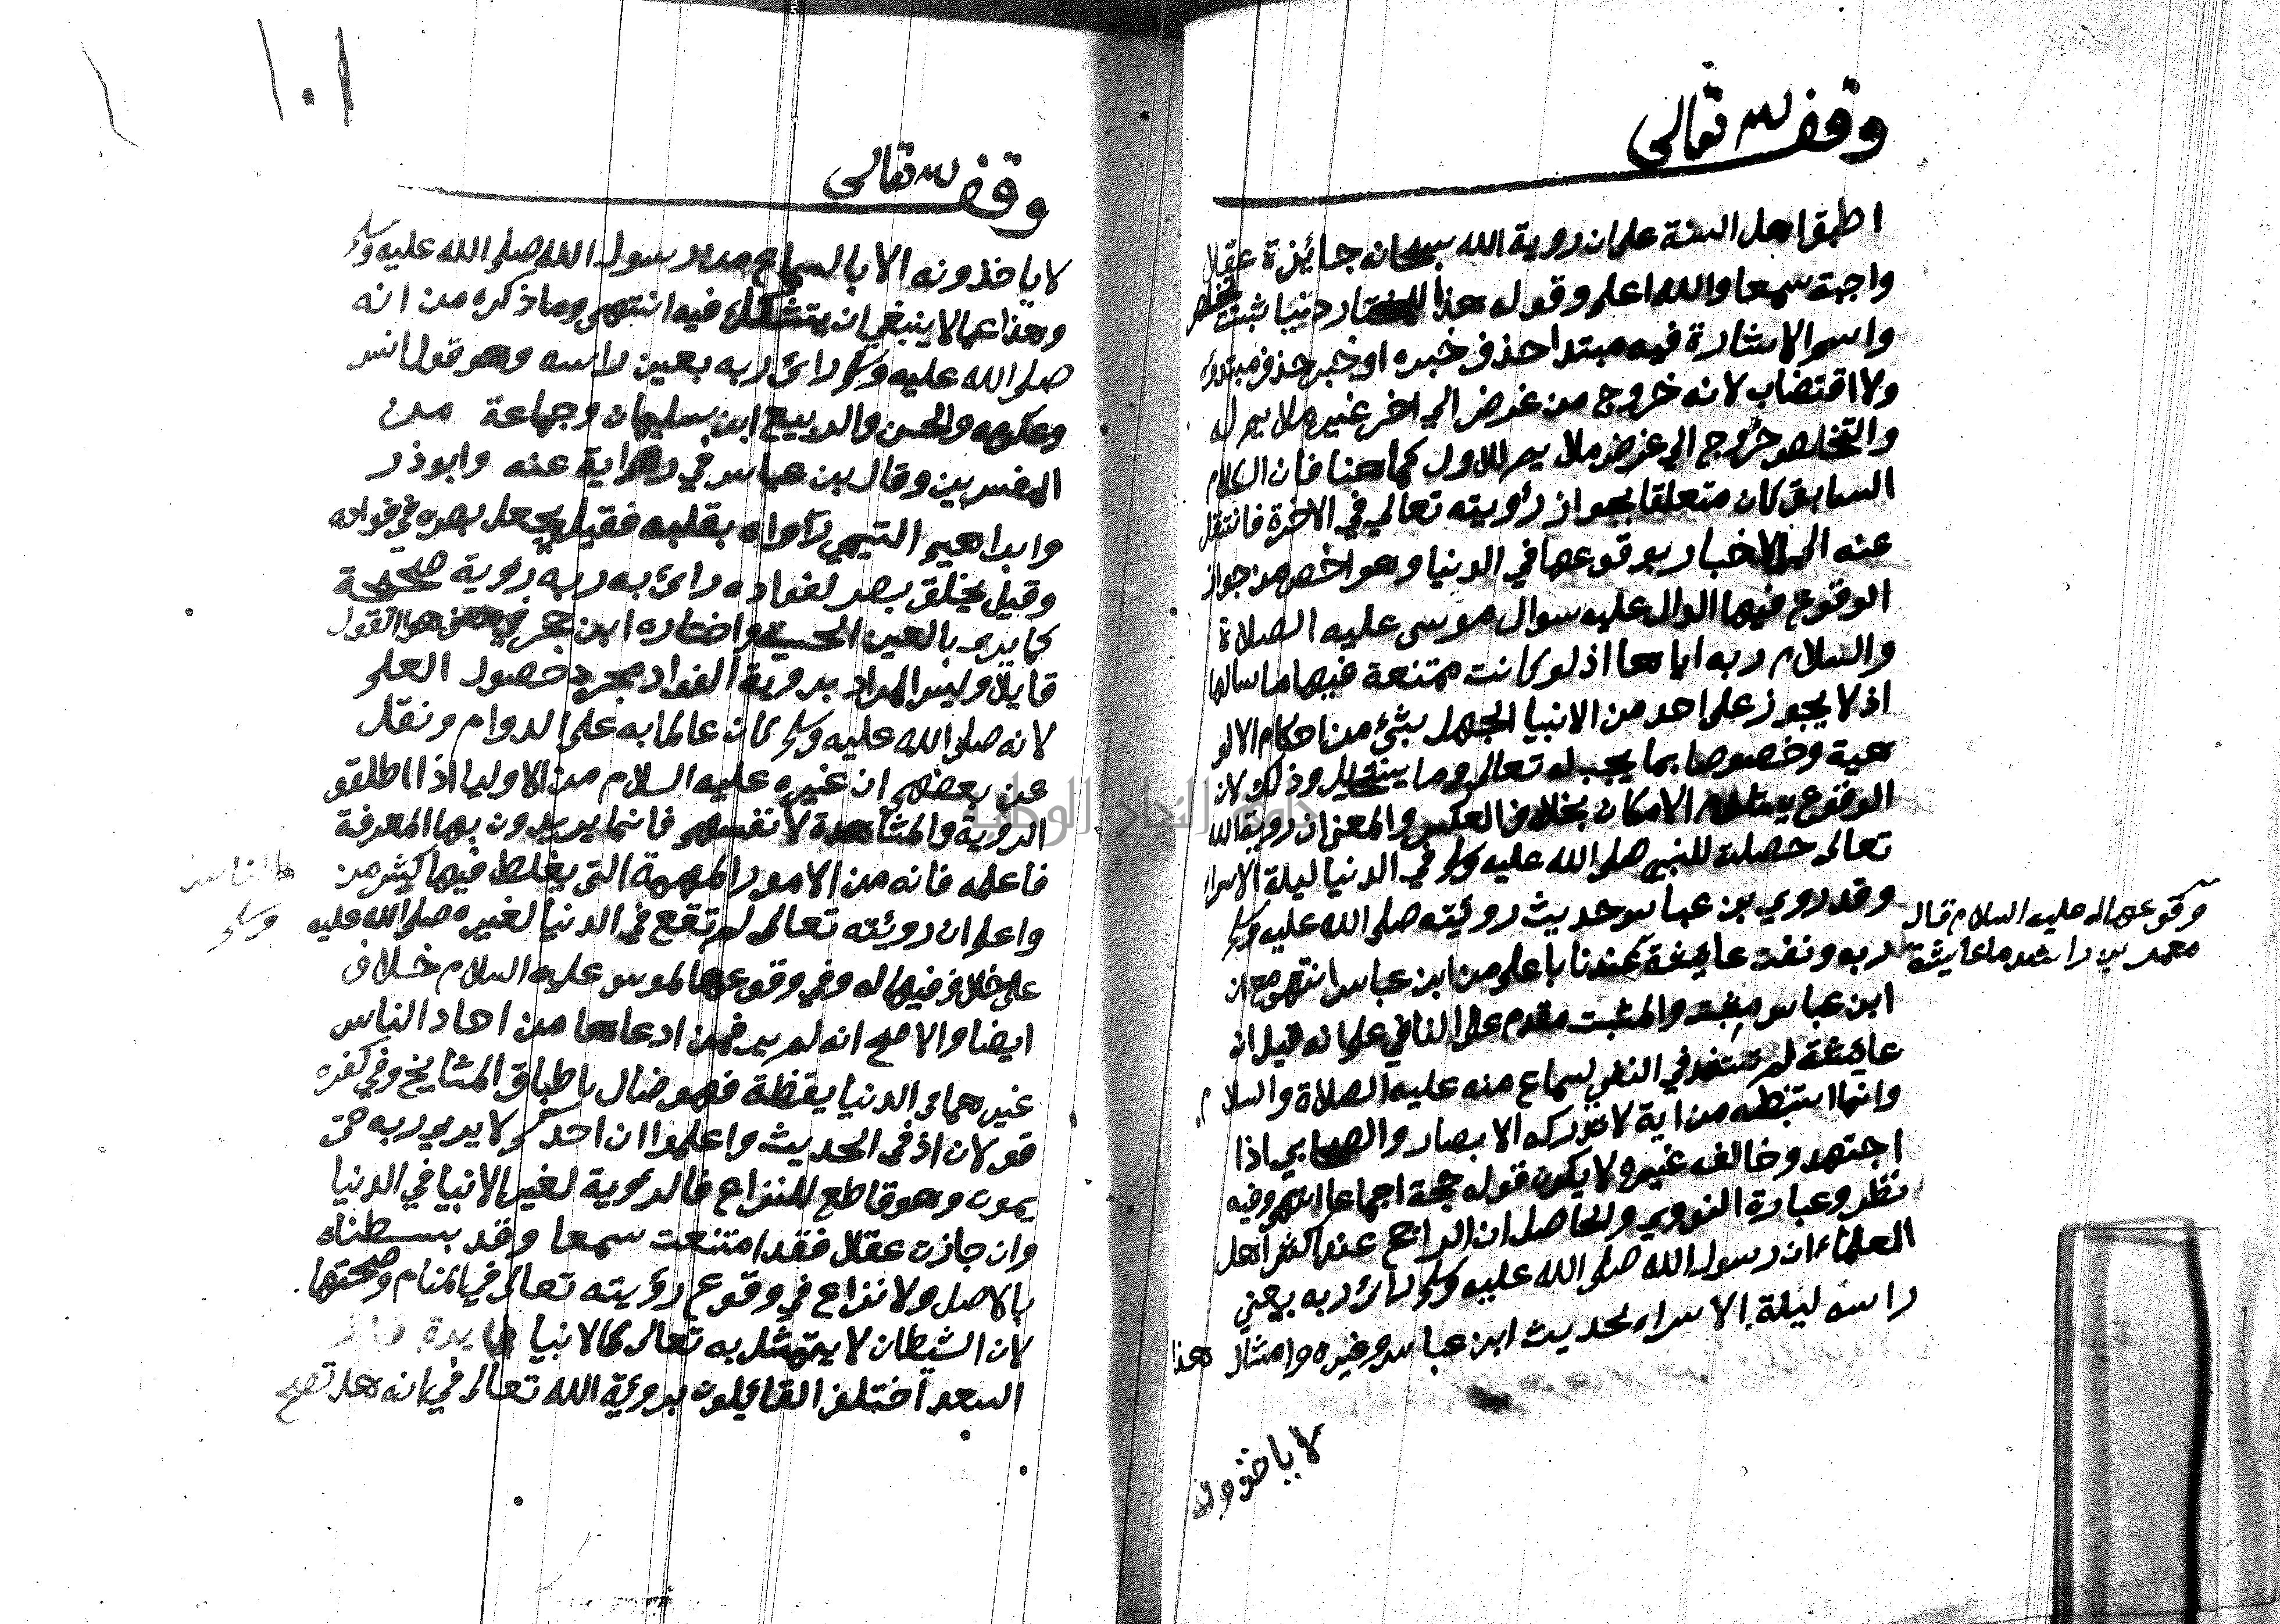 وقف لله تعالى
اطبق اهل السنة على ان روية الله سبحانه جايزة عقلا
واجبة سمعا والله اعلم وقوله هذا للمختار دنيا ثبت تخلص
واسم الاشارة فيه مبتدا حذف خبره او خبر حذف مبتدؤه
ولا اقتضاب لانه خروج من غرض الي اخر غير ملايم له
والتخلص خروج الي غرض ملايم للاول كما هنا فان الكلام
السابق كان متعلقا بجواز رؤيته تعالي في الاخرة فانتقل
عنه الى الاخبار بوقوعها في الدنيا وهو اخص من جواز
الوقوع فيها الدال عليه سوال موسى عليه الصلاة
والسلام ربه اياها اذ لو كانت ممتنعة فيها ما سالها
اذ لا يجوز على احد من الانبيا الجهل بشئ من احكام الالو
هية وخصوصا بما يجب له تعالى وما يستحيل وذلك لان
الوقوع يستلزم الامكان بخلاف العكس والمعنى ان روية الله
تعالى حصلت للنبي صلى الله عليه وسلم في الدنيا ليلة الاسرا
وقد روي بن عباس حديث روئيته صلى الله عليه وسلم
ربه ونفت عايشة
وقوعها له عليه السلام قال
معمر بن راشد ما عايشة
عندنا باعلم من ابن عباس انتهى مع ان
ابن عباس مثبت والمثبت مقدم على النافي على انه قيل ان
عايشة لم تستند في النفي لسماع منه عليه الصلاة والسلام
وانما استنبطته من اية لا تدركه الابصار والصحابي اذا
اجتهد وخالفه غيره لا يكون قوله حجة اجماعا انتهى وفيه
نظر وعبارة النووي والحاصل ان الراجح عند اكثر اهل
العلماء ان رسول الله صلى الله عليه وسلم رائ ربه بيعني
راسه ليلة الاسراء لحديث ابن عباس وغيره وامثال هذا
لا ياخذونه
١٠١
وقف لله تعالى
لا ياخذونه الا بالسماع من رسول الله صلى الله عليه وسلم
وهذا مما لا ينبغي ان يتشكك فيه انتهى وما ذكره من انه
صلى الله عليه وسلم رائ ربه بعين راسه وهو قول انس
وعكرمه والحسن والربيع ابن سليمان وجماعة من
المفسرين وقال بن عباس في رواية عنه وابوذر
وابراهيم التيمي رآواه بقلبه فقيل جعل بصره في فواده
وقيل خلق بصر لفواده رائ به ربه روية صحيحة
كما يرى بالعين الحسية واختاره ابن حجر هو القول
قايلا وليس المراد بروية الفواد مجرد حصول العلم
لانه صلى الله عليه وسلم كان عالما به على الدوام ونقل
عن بعضهم ان غيره عليه السلام من الاوليا اذا اطلقو
الروية والمشاهدة لانفسهم فانما يريدون بها المعرفة
فاعلمه فانه من الامور المهمة التي يغلط فيها كثير من
الناس
واعلم ان روئته تعالى لم تقع في الدنيا لغيره صلى الله عليه
وسلم
على خلاف فيها له وفي وقوعها لموسى عليه السلام خلاف
ايضا والاصح انه لم ير فمن ادعاها من احاد الناس
غيرهما في الدنيا يقظة فهو ضال باطباق المشايخ وفي كفره
قولان اذ في الحديث واعلموا ان احدكم لا يرى ربه حتى
يموت وهو قاطع للنزاع فالرؤية لغير الانبيا في الدنيا
وان جازت عقلا فقد امتنعت سمعا وقد بسطناه
بالاصل ولا نزاع في وقوع رؤيته تعالى في المنام وصحتها
لان الشيطان لا يتمثل به تعالى كالانبيا فايدة قال
السعد اختلف القايلون بروئية الله تعالى في انه هل تصح